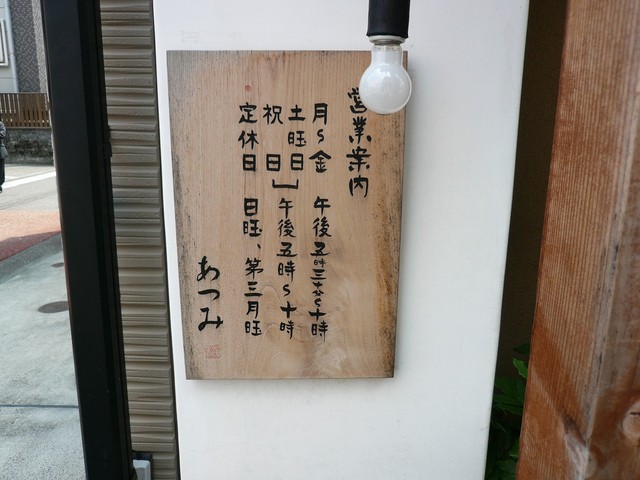 営業案内
月～金 午後五時三十分～十時
土旺日
祝 日 午後五時～十時
定休日 日旺、第三月旺
あつみ